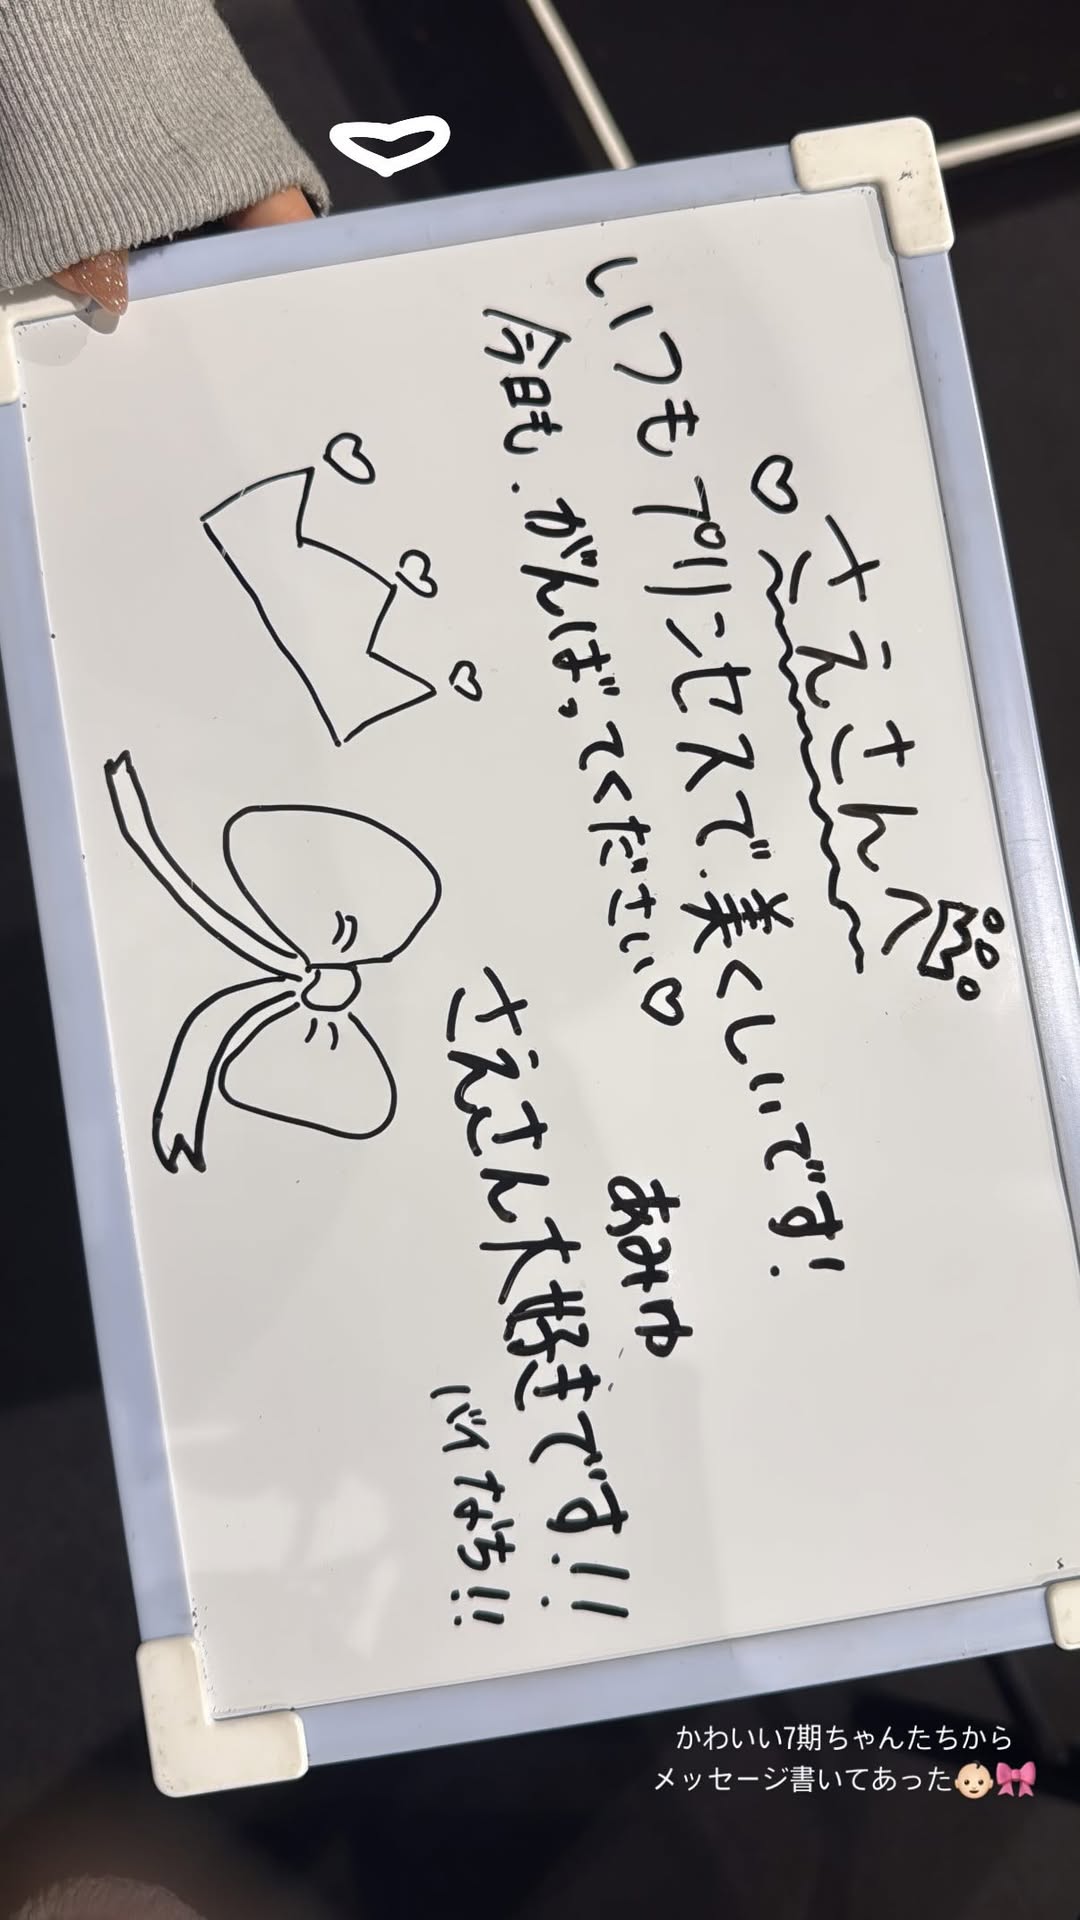 ♡さえさんへ
いつもプリンセスで美しいです!
今日もがんばってください♡
あみゆ
さえさん大好きです!!
バイなち!!
かわいい7期ちゃんたちから
メッセージ書いてあった👶🏻🎀